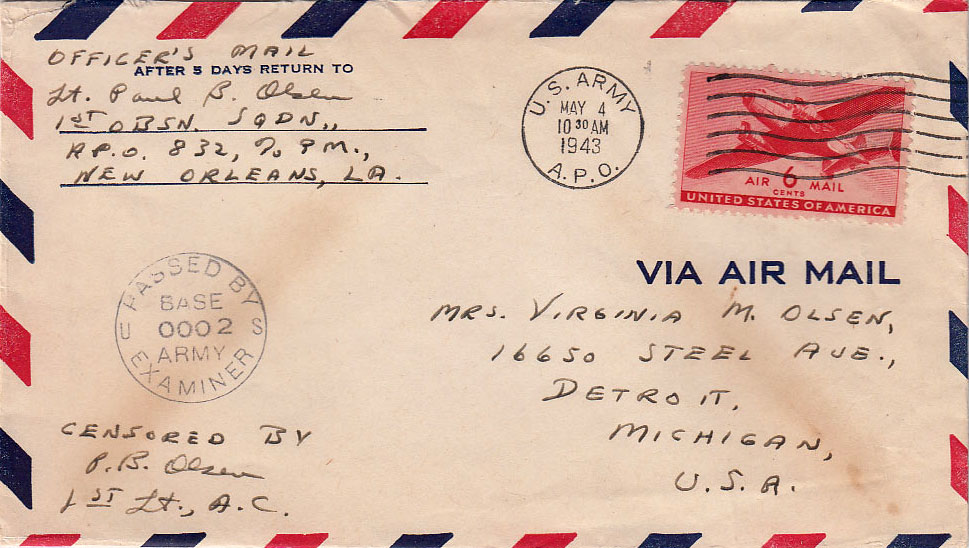 OFFICER'S MAIL
AFTER 5 DAYS RETURN TO
Lt. Paul B. Olsen
1ST OBSN. SQDN.,
A.P.O. 832, % P.M.,
NEW ORLEANS, LA.
U.S. ARMY
MAY 4
10 30 AM
1943
A.P.O.
AIR 6 MAIL
CENTS
UNITED STATES OF AMERICA
VIA AIR MAIL
MRS. VIRGINIA M. OLSEN,
16650 STEEL AVE.,
DETROIT,
MICHIGAN,
U.S.A.
PASSED BY
BASE
0002
U S
ARMY
EXAMINER
CENSORED BY
P.B. Olsen
1ST Lt., A.C.